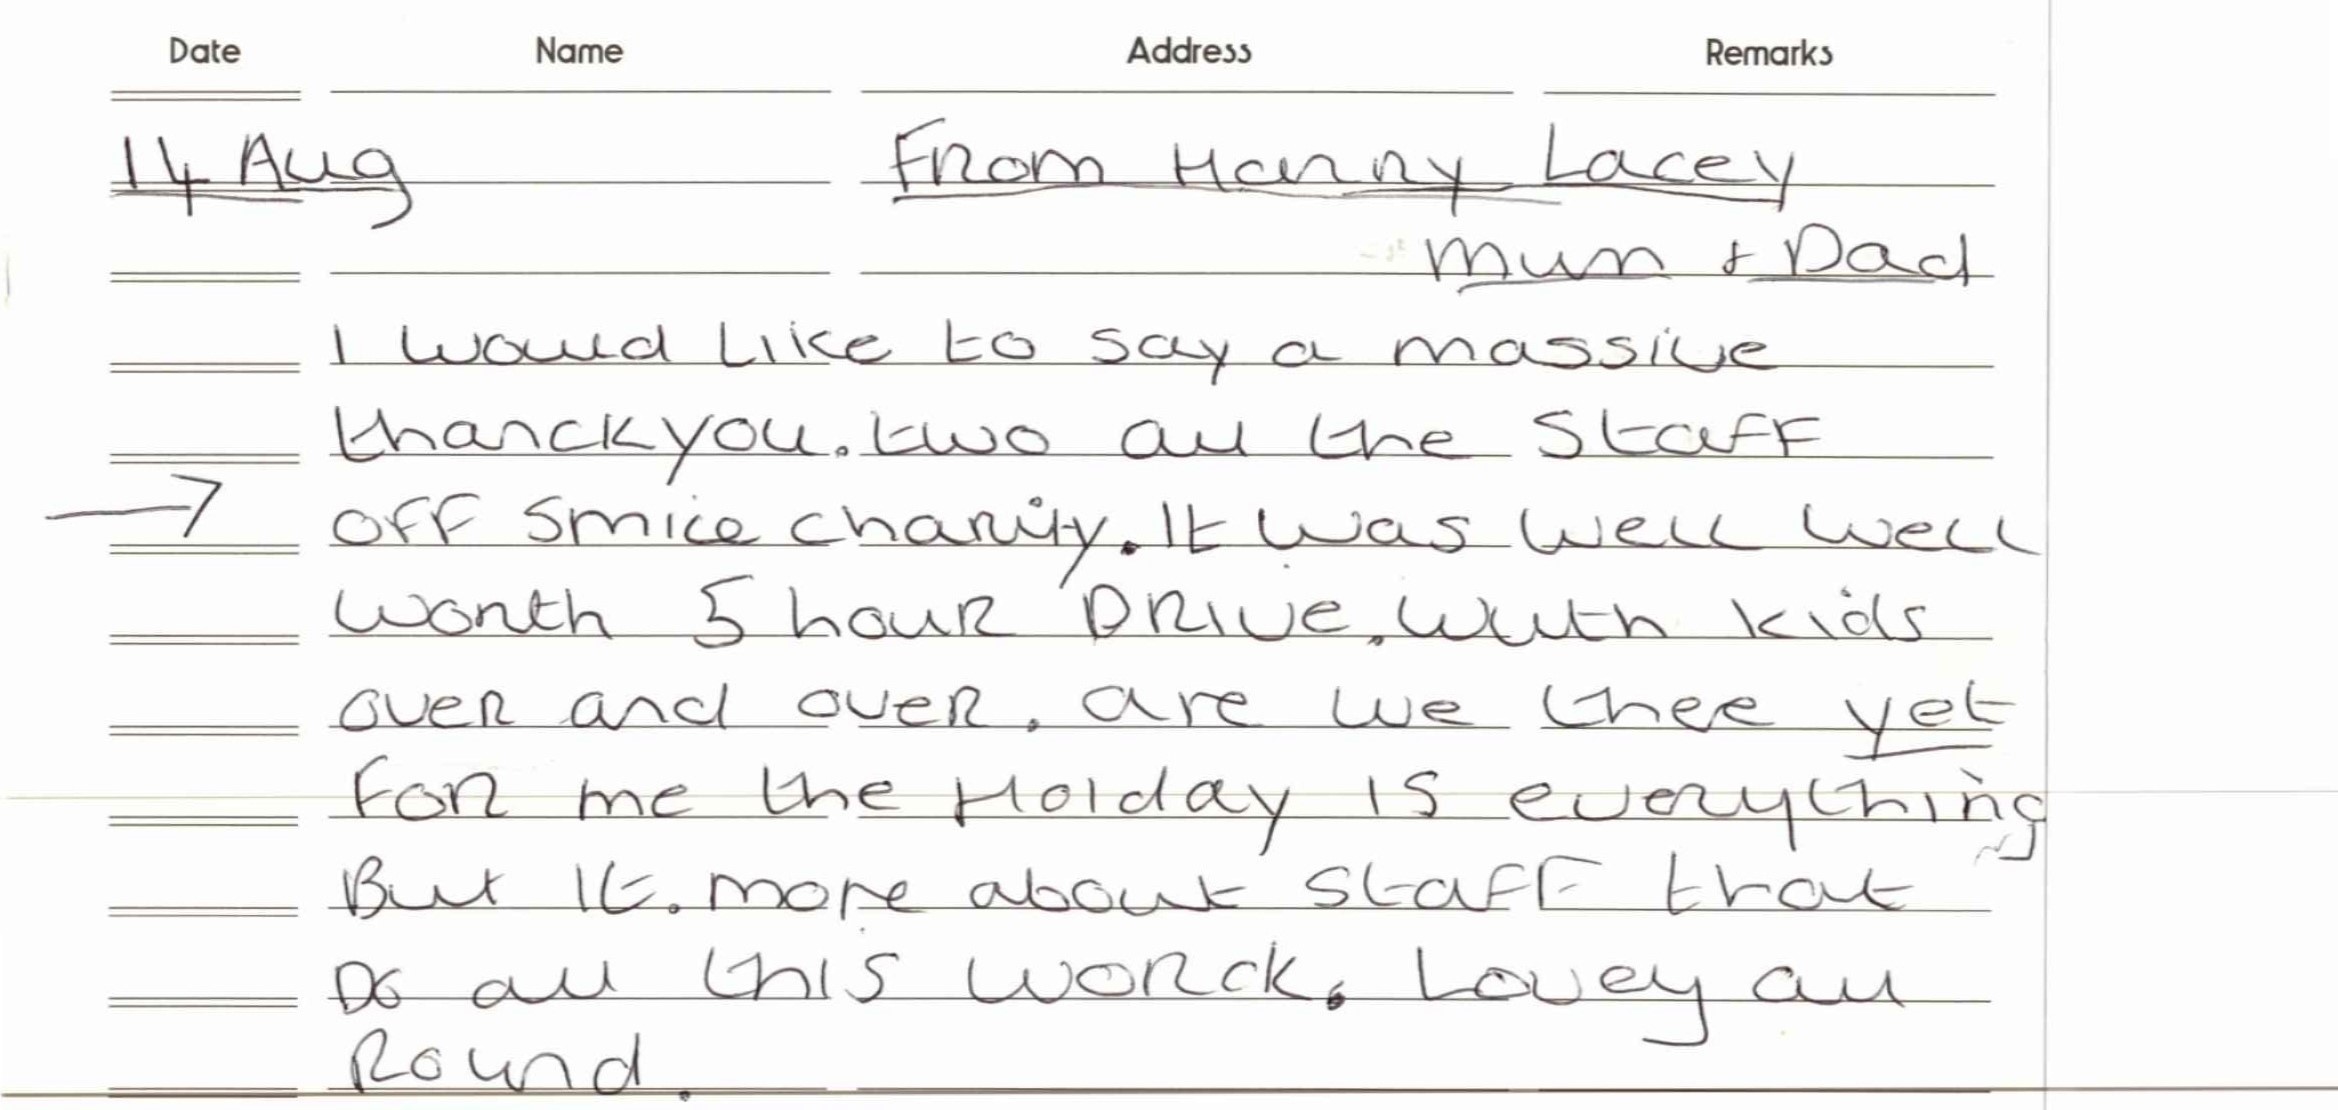 Date Name Address Remarks
14 Aug From Harry Lacey
Mum + Dad
I would Like to say a massive
thanckyou. two all the Staff
OFF Smile charity. It was well well
worth 5 hour DRIVE. with kids
over and over. are we thee yet
For me the Holday is everything
But It. more about Staff that
Do all this worck. Lovey all
Round.